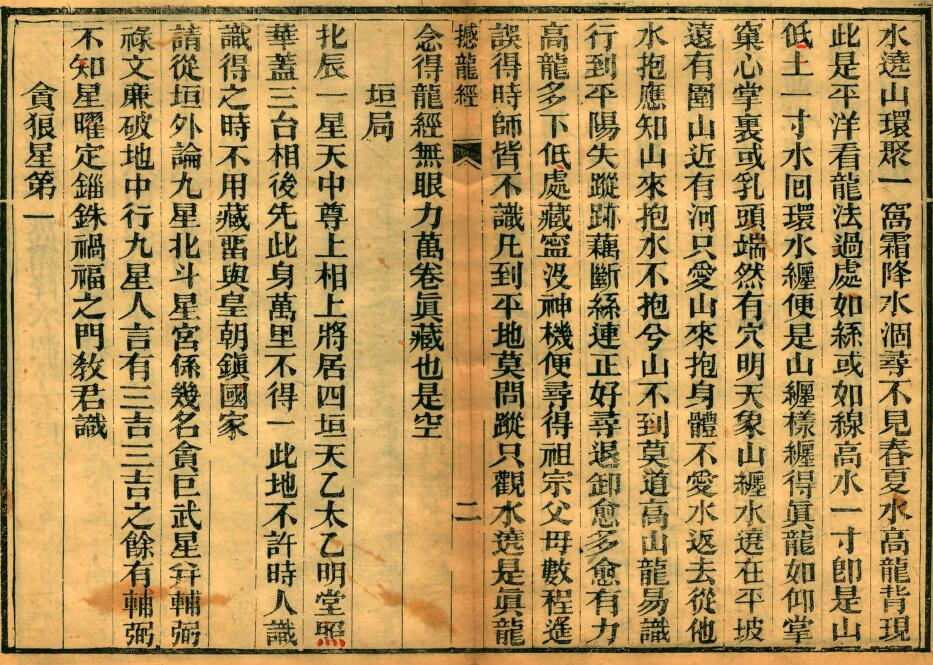 水遶山環聚一窩霜降水涸尋不見春夏水高龍背現
此是平洋看龍法過處如絲或如線高水一寸卽是山
低土一寸水囘環水纏便是山纏樣纏得眞龍如仰掌
窠心掌裏或乳頭端然有穴明天象山纏水遶在平坡
遠有圍山近有河只愛山來抱身體不愛水返去從他
水抱應知山來抱水不抱兮山不到莫道高山龍易識
行到平陽失蹤跡藕斷絲連正好尋退卸愈多愈有力
高龍多下低處藏寍沒神機便尋得祖宗父母數程遙
誤得時師皆不識凡到平地莫問蹤只觀水遶是眞龍
撼龍經
二
念得龍經無眼力萬卷眞藏也是空
垣局
北辰一星天中尊上相上將居四垣天乙太乙明堂照
華蓋三台相後先此身萬里不得一此地不許時人識
識得之時不用藏畱與皇朝鎭國家
請從垣外論九星北斗星宮係幾名貪巨武星并輔弼
祿文廉破地中行九星人言有三吉三吉之餘有輔弼
不知星曜定錙銖禍福之門敎君識
貪狼星第一